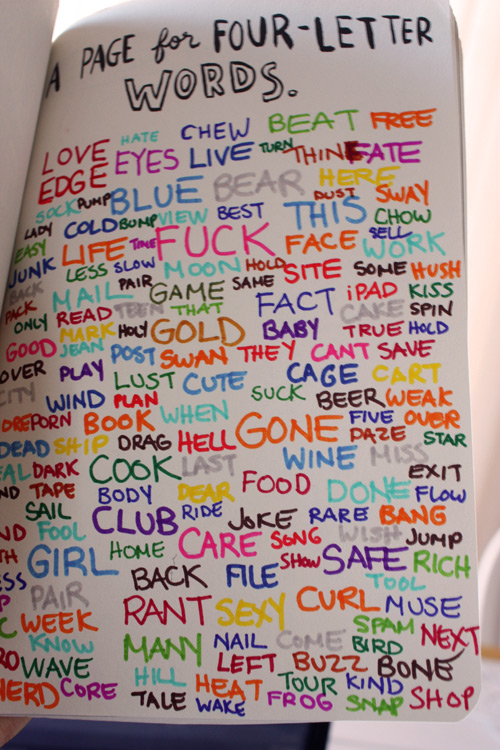 A PAGE for FOUR-LETTER
WORDS.
LOVE HATE CHEW BEAT FREE
EDGE EYES LIVE TURN THIN FATE
SOCK PUMP BLUE BEAR HERE DUST SWAY
LADY COLD BUMP VIEW BEST THIS CHOW
EASY LIFE TIME FUCK FACE SELL WORK
JUNK LESS SLOW MOON HOLD SITE SOME HUSH
BACK MAIL PAIR GAME SAME FACT iPAD KISS
PACK ONLY READ TEEN THAT CAKE SPIN
GOOD MARK HOLY GOLD BABY TRUE HOLD
JEAN POST SWAN THEY CANT SAVE
OVER PLAY LUST CUTE CAGE CART
CITY WIND PLAN SUCK BEER WEAK
PORN BOOK WHEN GONE FIVE OVER
DEAD SHIP DRAG HELL DAZE STAR
DARK COOK LAST WINE MISS EXIT
TAPE BODY DEAR FOOD DONE FLOW
SAIL CLUB RIDE JOKE RARE BANG
FOOL HOME CARE SONG WISH JUMP
GIRL BACK FILE SHOW SAFE RICH
PAIR RANT SEXY CURL TOOL MUSE
WEEK MANY NAIL COME SPAM NEXT
KNOW LEFT BUZZ BIRD BONE
WAVE HILL HEAT TOUR KIND
NERD CORE TALE WAKE FROG SNAP SHOP